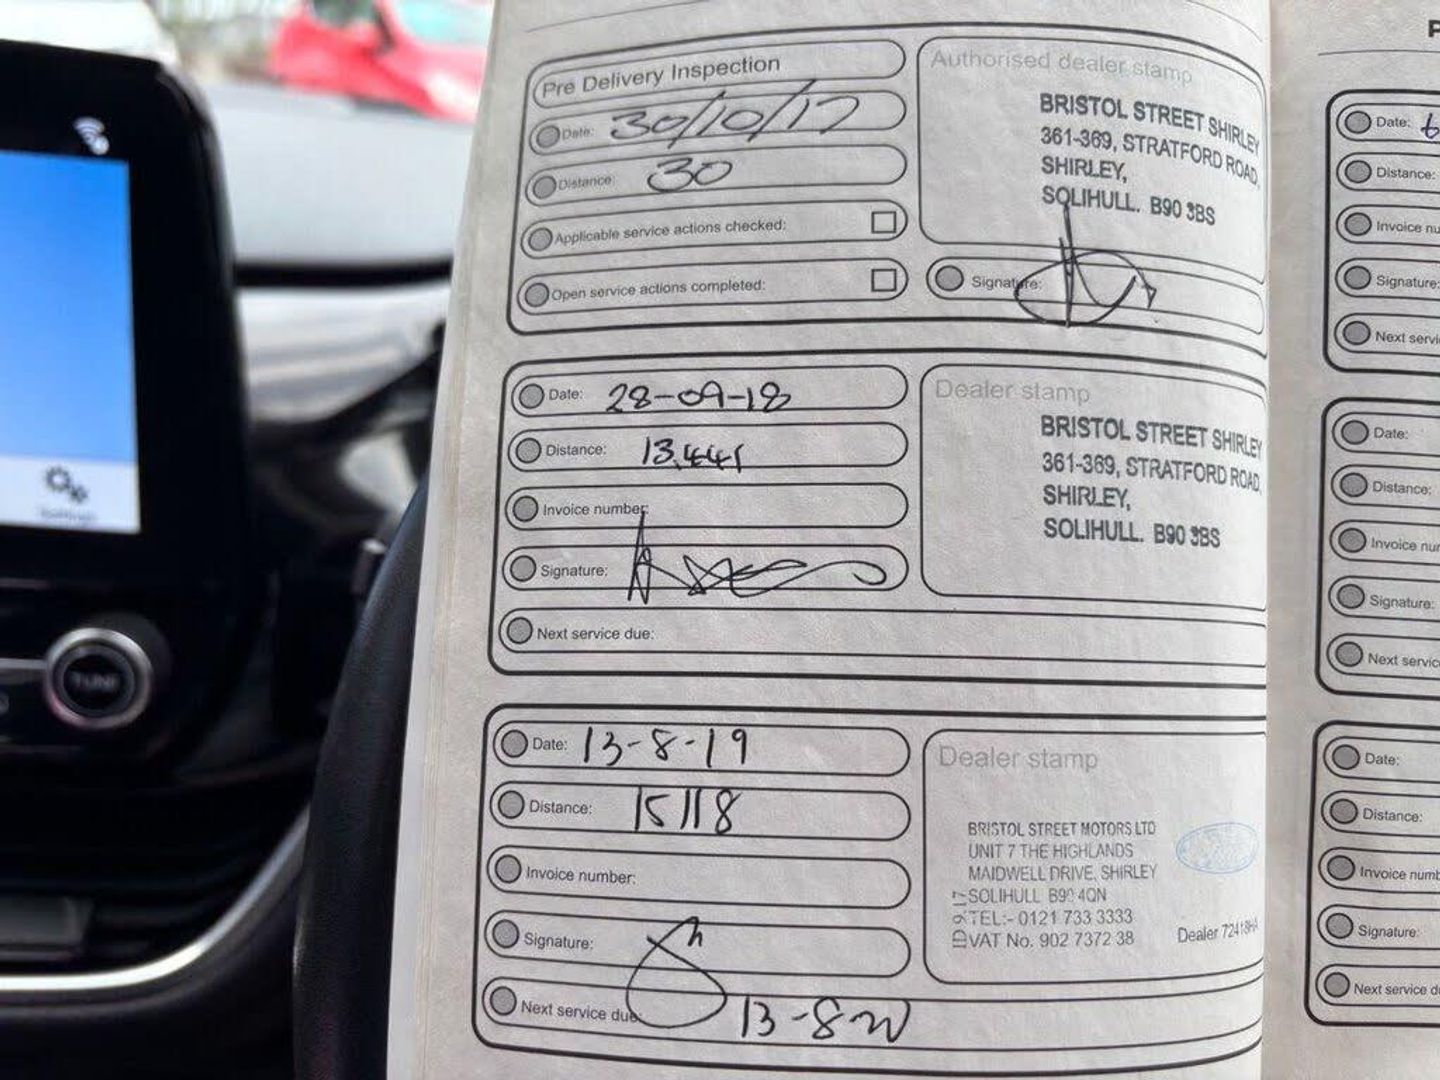 Pre Delivery Inspection
Date: 30/10/17
Distance: 30
Applicable service actions checked:
Open service actions completed:
Authorised dealer stamp
BRISTOL STREET SHIRLEY
361-369, STRATFORD ROAD,
SHIRLEY,
SOLIHULL. B90 3BS
Signature:
Date: 28-09-18
Distance: 13,441
Invoice number:
Signature:
Next service due:
Dealer stamp
BRISTOL STREET SHIRLEY
361-369, STRATFORD ROAD,
SHIRLEY,
SOLIHULL. B90 3BS
Date: 13-8-19
Distance: 15118
Invoice number:
Signature:
Next service due: 13-8-20
Dealer stamp
BRISTOL STREET MOTORS LTD
UNIT 7 THE HIGHLANDS
MAIDWELL DRIVE, SHIRLEY
SOLIHULL B90 4QN
TEL:- 0121 733 3333
VAT No. 902 7372 38
Dealer
Date:
Distance:
Invoice nu
Signature:
Next servi
Date:
Distance:
Invoice nur
Signature:
Next servic
Date:
Distance:
Invoice numb
Signature:
Next service d
TUNE